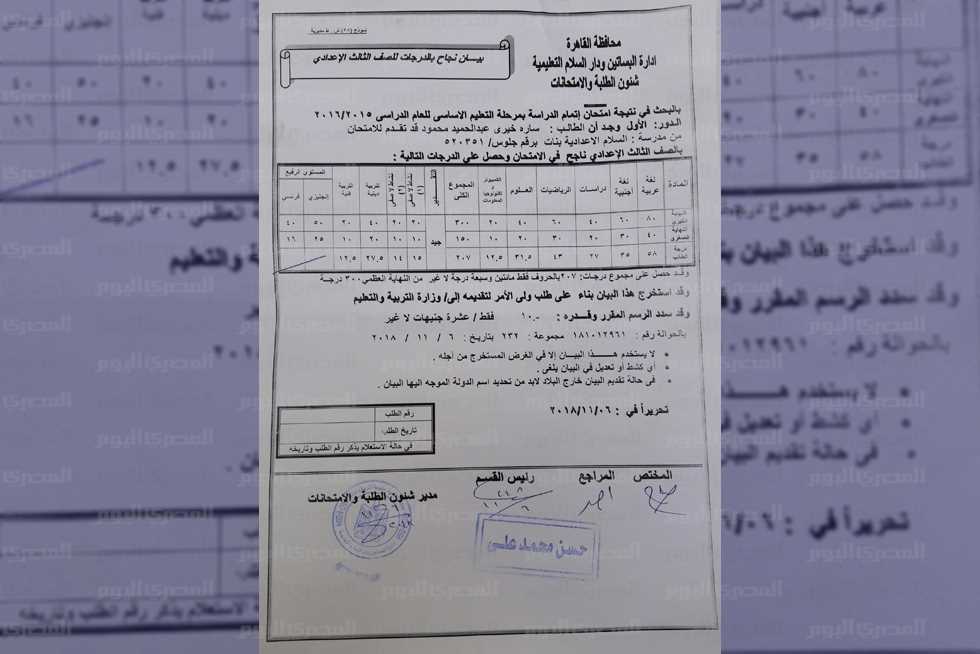 محافظة القاهرة
ادارة البساتين ودار السلام التعليمية
شئون الطلبة والامتحانات
بيسان نجاح بالدرجات للصف الثالث الإعدادي
بالبحث في نتيجة امتحان إتمام الدراسة بمرحلة التعليم الاساسى للعام الدراسى ٢٠١٦/٢٠١٥
الدور: الأول وجد أن الطالب : ساره خيرى عبدالحميد محمود قد تقدم للامتحان
من مدرسة : السلام الاعدادية بنات برقم جلوس/ ٥٢٠٣٥١
بالصف الثالث الإعدادي ناجح في الامتحان وحصل علي الدرجات التالية :
المادة لغة عربية لغة أجنبية دراسات الرياضيات العلوم الكمبيوتر وتكنولوجيا المعلومات المجموع الكلى نشاط لا صفى (١) نشاط لا صفى (٢) التربية دينية التربية فنية المستوى الرفيع إنجليزي فرنسي
النهاية الكبرى ٨٠ ٦٠ ٤٠ ٦٠ ٤٠ ٢٠ ٣٠٠ ٢٠ ٢٠ ٤٠ ٢٠ ٥٠ ٤٠
النهاية الصغرى ٤٠ ٣٠ ٢٠ ٣٠ ٢٠ ١٠ ١٥٠ جيد ١٠ ١٠ ٢٠ ١٠ ٢٥ ١٦
درجة الطالب ٥٨ ٣٥ ٢٧ ٤٣ ٣١,٥ ١٢,٥ ٢٠٧ ١٥ ١٤ ٢٧,٥ ١٢,٥
وقد حصل على مجموع درجات: ٢٠٧ بالحروف فقط مائتين وسبعة درجة لا غير من النهاية العظمي ٣٠٠ درجة
وقد استخرج هذا البيان بناء على طلب ولى الأمر لتقديمه إلى/ وزارة التربية والتعليم
وقد سدد الرسم المقرر وقدره : ١٠.- فقط / عشرة جنيهات لا غير
بالحوالة رقم : ١٨١٠١٢٩٦١ مجموعة : ٢٣٢ بتاريخ : ٦ / ١١ / ٢٠١٨
• لا يستخدم هـذا البيان إلا في الغرض المستخرج من أجله .
• أي كشط أو تعديل في البيان يلغى .
• فى حالة تقديم البيان خارج البلاد لابد من تحديد اسم الدولة الموجه اليها البيان .
تحريراً في : ٢٠١٨/١١/٠٦
رقم الطلب
تاريخ الطلب
في حالة الاستعلام يذكر رقم الطلب وتاريخه
المختص المراجع رئيس القسم مدير شئون الطلبة والامتحانات
حسن محمد على
المصري اليوم